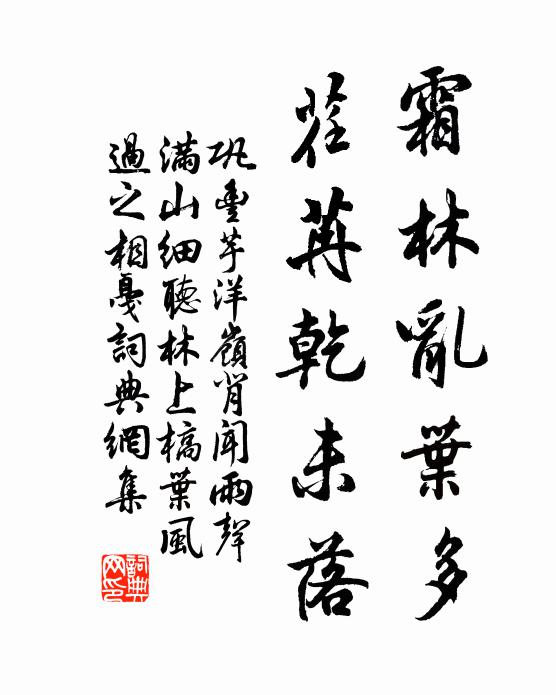 霜林亂葉多
荏苒乾未落
巩豐芋洋嶺背聞雨聲
滿山細聽林上槁葉風
過之相戛詞典網集
詞典網印